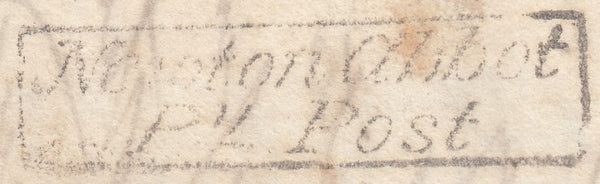 Newton Abbot
Py. Post